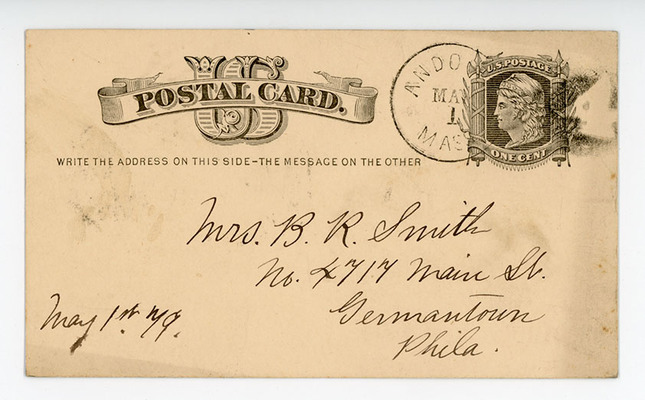 US
POSTAL CARD.
WRITE THE ADDRESS ON THIS SIDE-THE MESSAGE ON THE OTHER
ANDO
MA
1
MAS
U.S. POSTAGE
ONE CENT
Mrs. B. R. Smith
No. 4717 Main St.
Germantown
Phila.
May 1st 79.